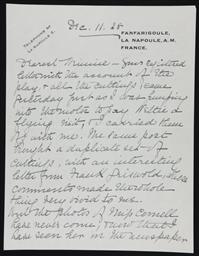 Dec. 11. 28
TELEPHONE Nº
LA NAPOULE
FANFARIGOULE,
LA NAPOULE, A.M.
FRANCE.
Dearest Minnie — your registered
letter with the account of the
play & all the cuttings, came
yesterday just as I was jumping
into the motor to pay
flying visit, & I carried them
off with me. The same post
brought a duplicate set of
cuttings, with an interesting
letter from Frank. These
comments made the whole
thing very vivid to me.
Only the photos of Miss Cornell
have never come, & now that I
have seen her in the newspaper